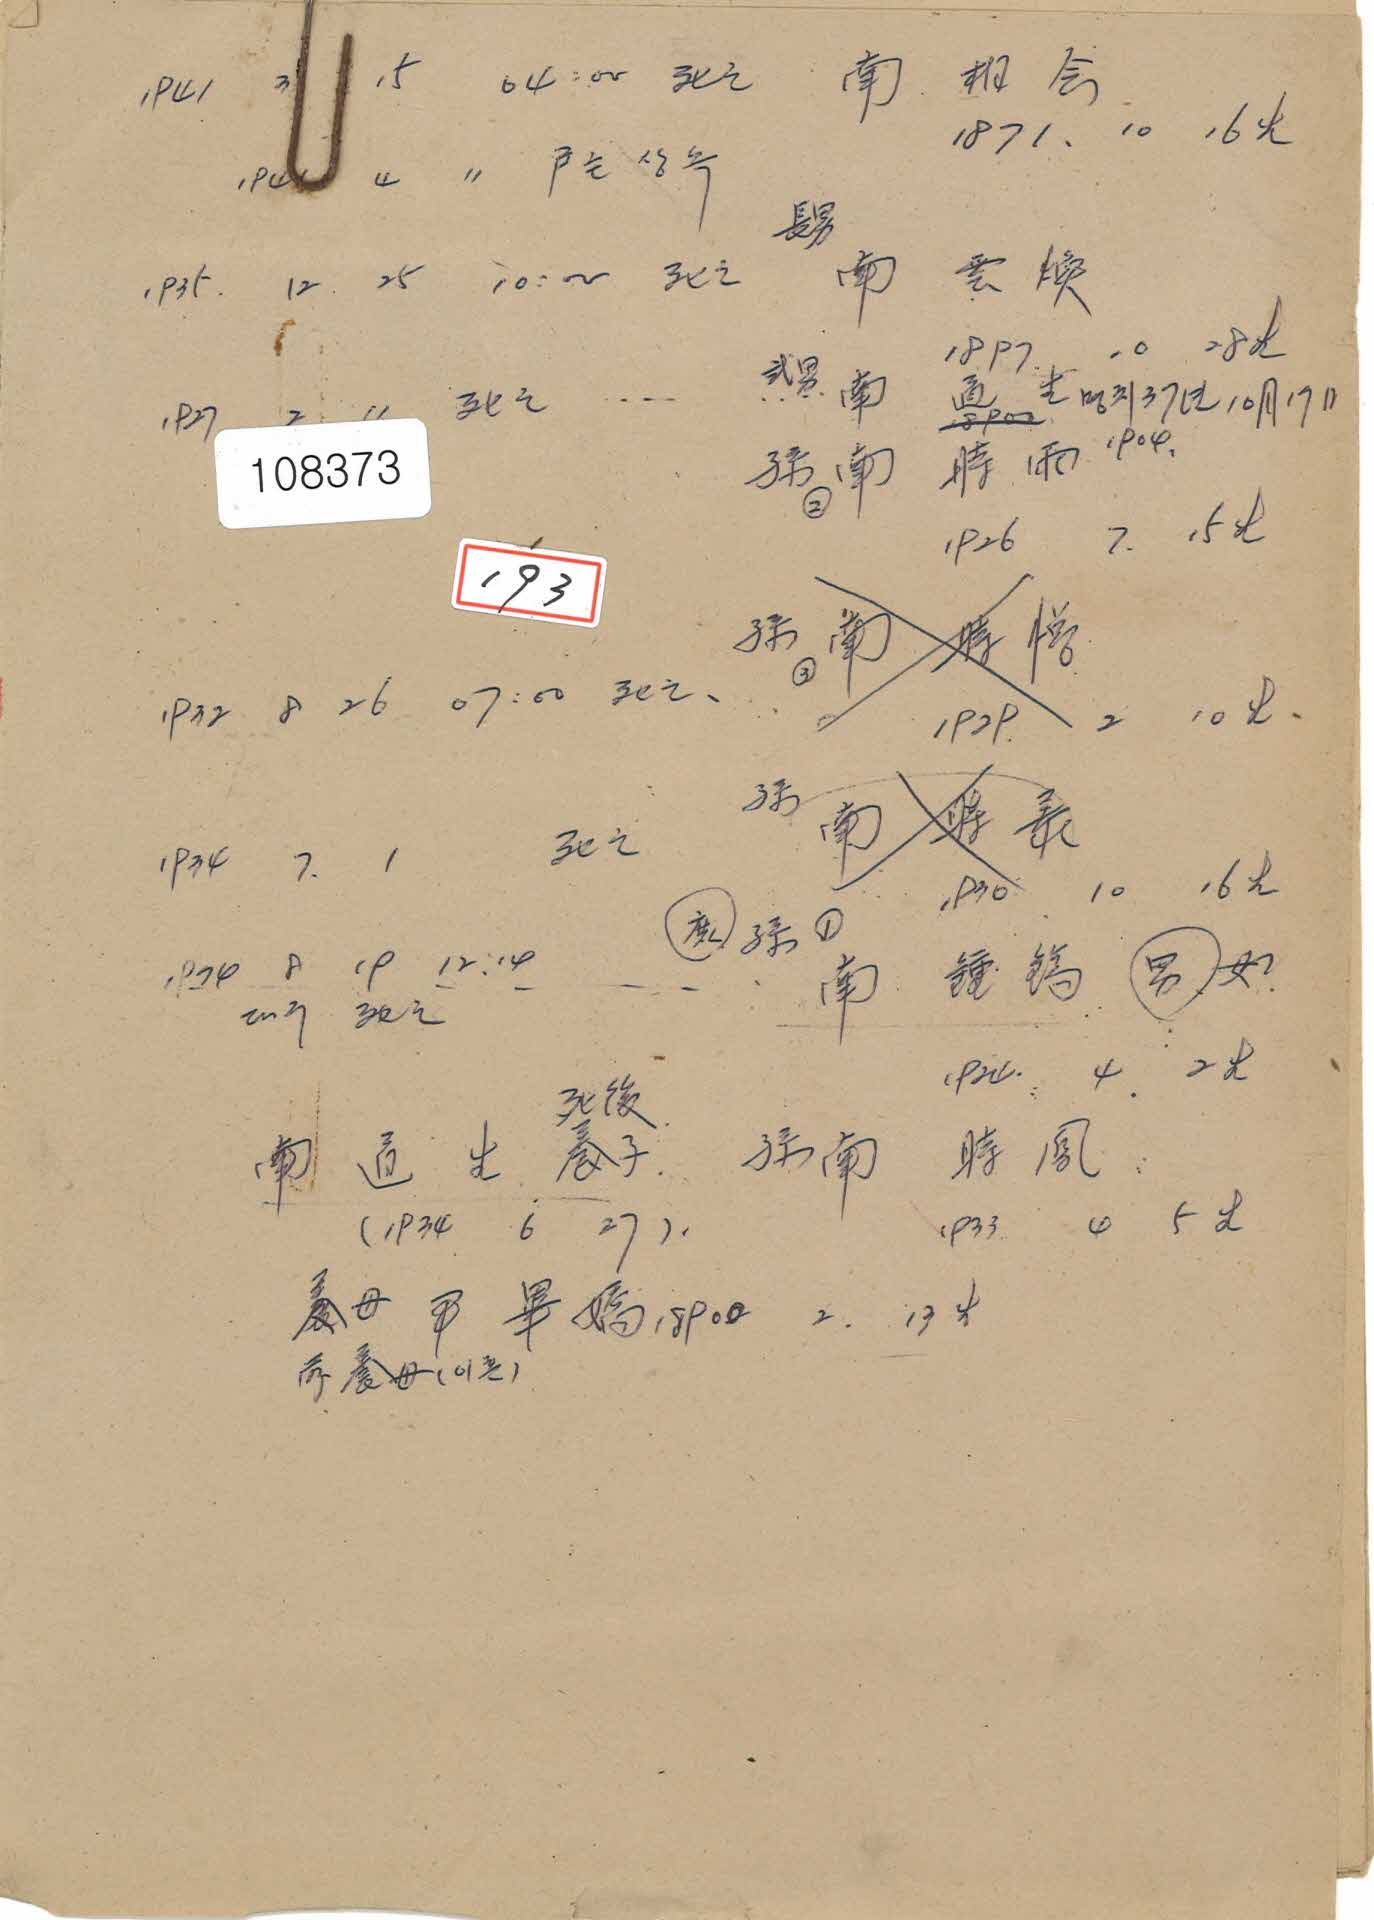 1941 3 15 04:00 死亡 南 相 会
1871. 10 16生
1941 4 〃 戶主상속
長男
1935. 12. 25 10:00 死亡 南 雲 煥
1897. 10 28生
1927 2 11 死亡 ..... 弐男 南 道 生 명치37년 10月17日
孫 ② 南 時 雨 1904.
1926 7. 15生
193
108373
孫 ③ 南 時
1932 8 26 07:00 死亡、
1929. 2 10生.
孫 南 時 義
1934 7. 1 死亡
1930 10 16生
庶 孫 ① 南 鍾 鎬 男 女?
1974 8 19 12:14
대구 死亡
1924. 4. 2生
死後
南 道 生 養子. 孫 南 時 鳳
(1934 6 27). 1933 4 5生
養母 畢 嬌 1900 2. 13生
前養母(이혼)